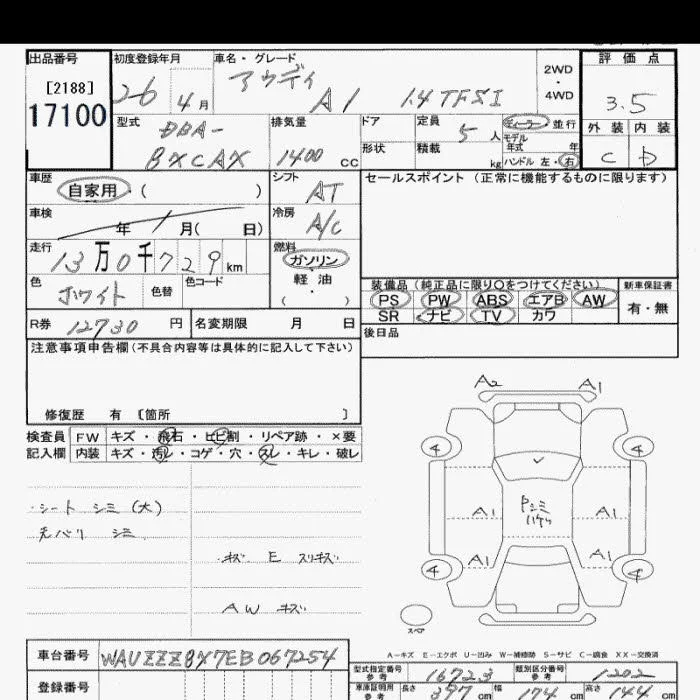 出品番号 初度登録年月 車名・グレード 評価点
[2188] 17100 26 4月 アウディ A1 1.4TFSI 2WD・4WD 3.5
型式 排気量 ドア 定員 5人 ディーラー 並行 外装 内装
DBA-8XCAX 1400cc 形状 積載 kg モデル年式 年 ハンドル 左・右 C D
車歴 シフト セールスポイント (正常に機能するものに限ります)
自家用・( ) AT
車検 年 月( 日) 冷房 A/C
走行 13万0千729km 燃料 ガソリン
軽油
・( )
色 ホワイト 色替 色コード
装備品 (純正品に限り〇をつけてください) 新車保証書
PS PW ABS エアB AW 有・無
SR ナビ TV カワ
R券 12730円 名変期限 月 日 後日品
注意事項申告欄 (不具合内容等は具体的に記入して下さい)
修復歴 有 〔箇所 〕
検査員 FW キズ・飛石・ヒビ割・リペア跡・×要
記入欄 内装 キズ・汚レ・コゲ・穴・スレ・キレ・破レ
・シート シミ (大)
天バリ シミ
・キズ E スリキズ・
AW キズ
A2 A1
4 4
A1 Pシミ ハゲ A1
A1 A1
4 4
スペア
A-キズ E-エクボ U-凹み W-補修跡 S-サビ C-腐食 XX-交換済
車台番号 WAUZZZ8X7EB067254
型式指定番号 参考 16723 類別区分番号 参考 1202
登録番号 車庫証明用 参考 長さ 397cm 幅 174cm 高さ 144cm